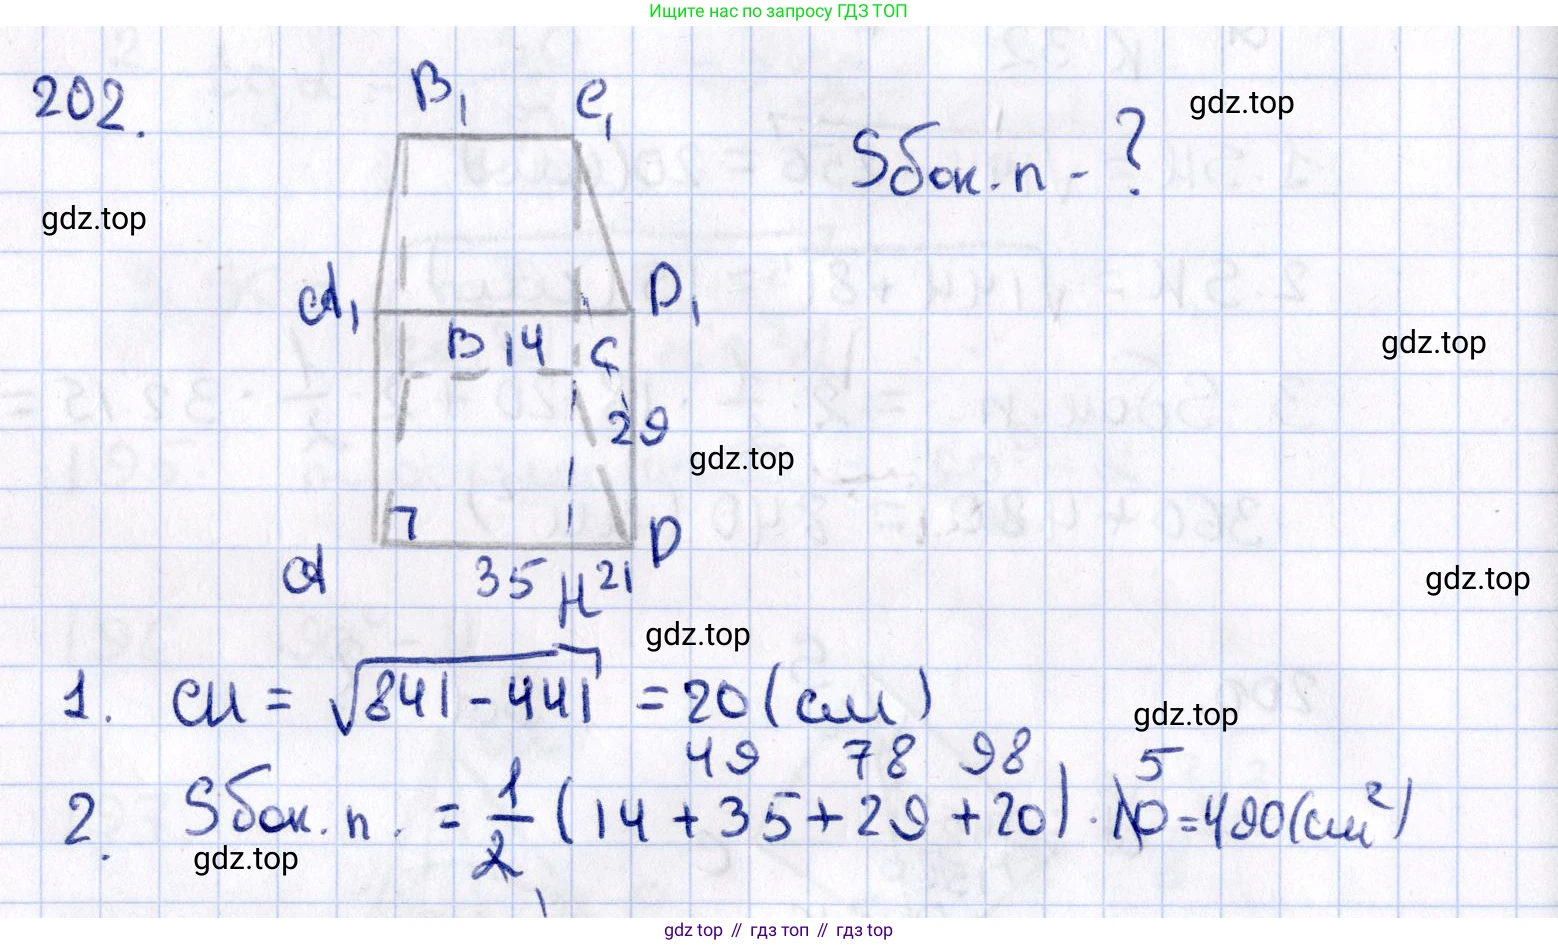 Ищите нас по запросу ГДЗ ТОП
202.
B₁ C₁
Sбок.п - ?
gdz.top
gdz.top
A₁ D₁
B 14 C
gdz.top
29
gdz.top
A 35 H 21 D
gdz.top
gdz.top
1. CH = √841 - 441 = 20 (см)
gdz.top
49 78 98 5
2. Sбок.п. = 1/2 (14 + 35 + 29 + 20) · 10 = 490 (см²)
gdz.top
1
gdz.top // гдз топ // гдз top